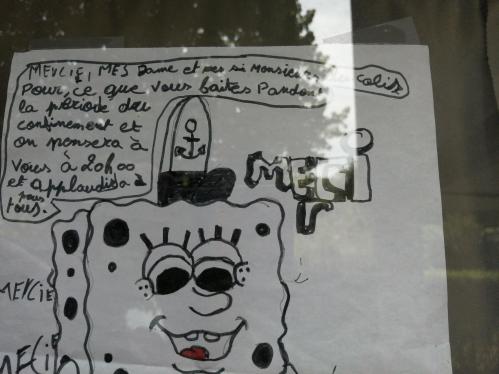 MERCIE, MES Dame et mes si Monsieu
Pour ce que vous faites Pandan
la période du
confinement et
on pensera à
vous à 20h00
et applaudisa à
tous.
MERCI
MERCIE
MECIE